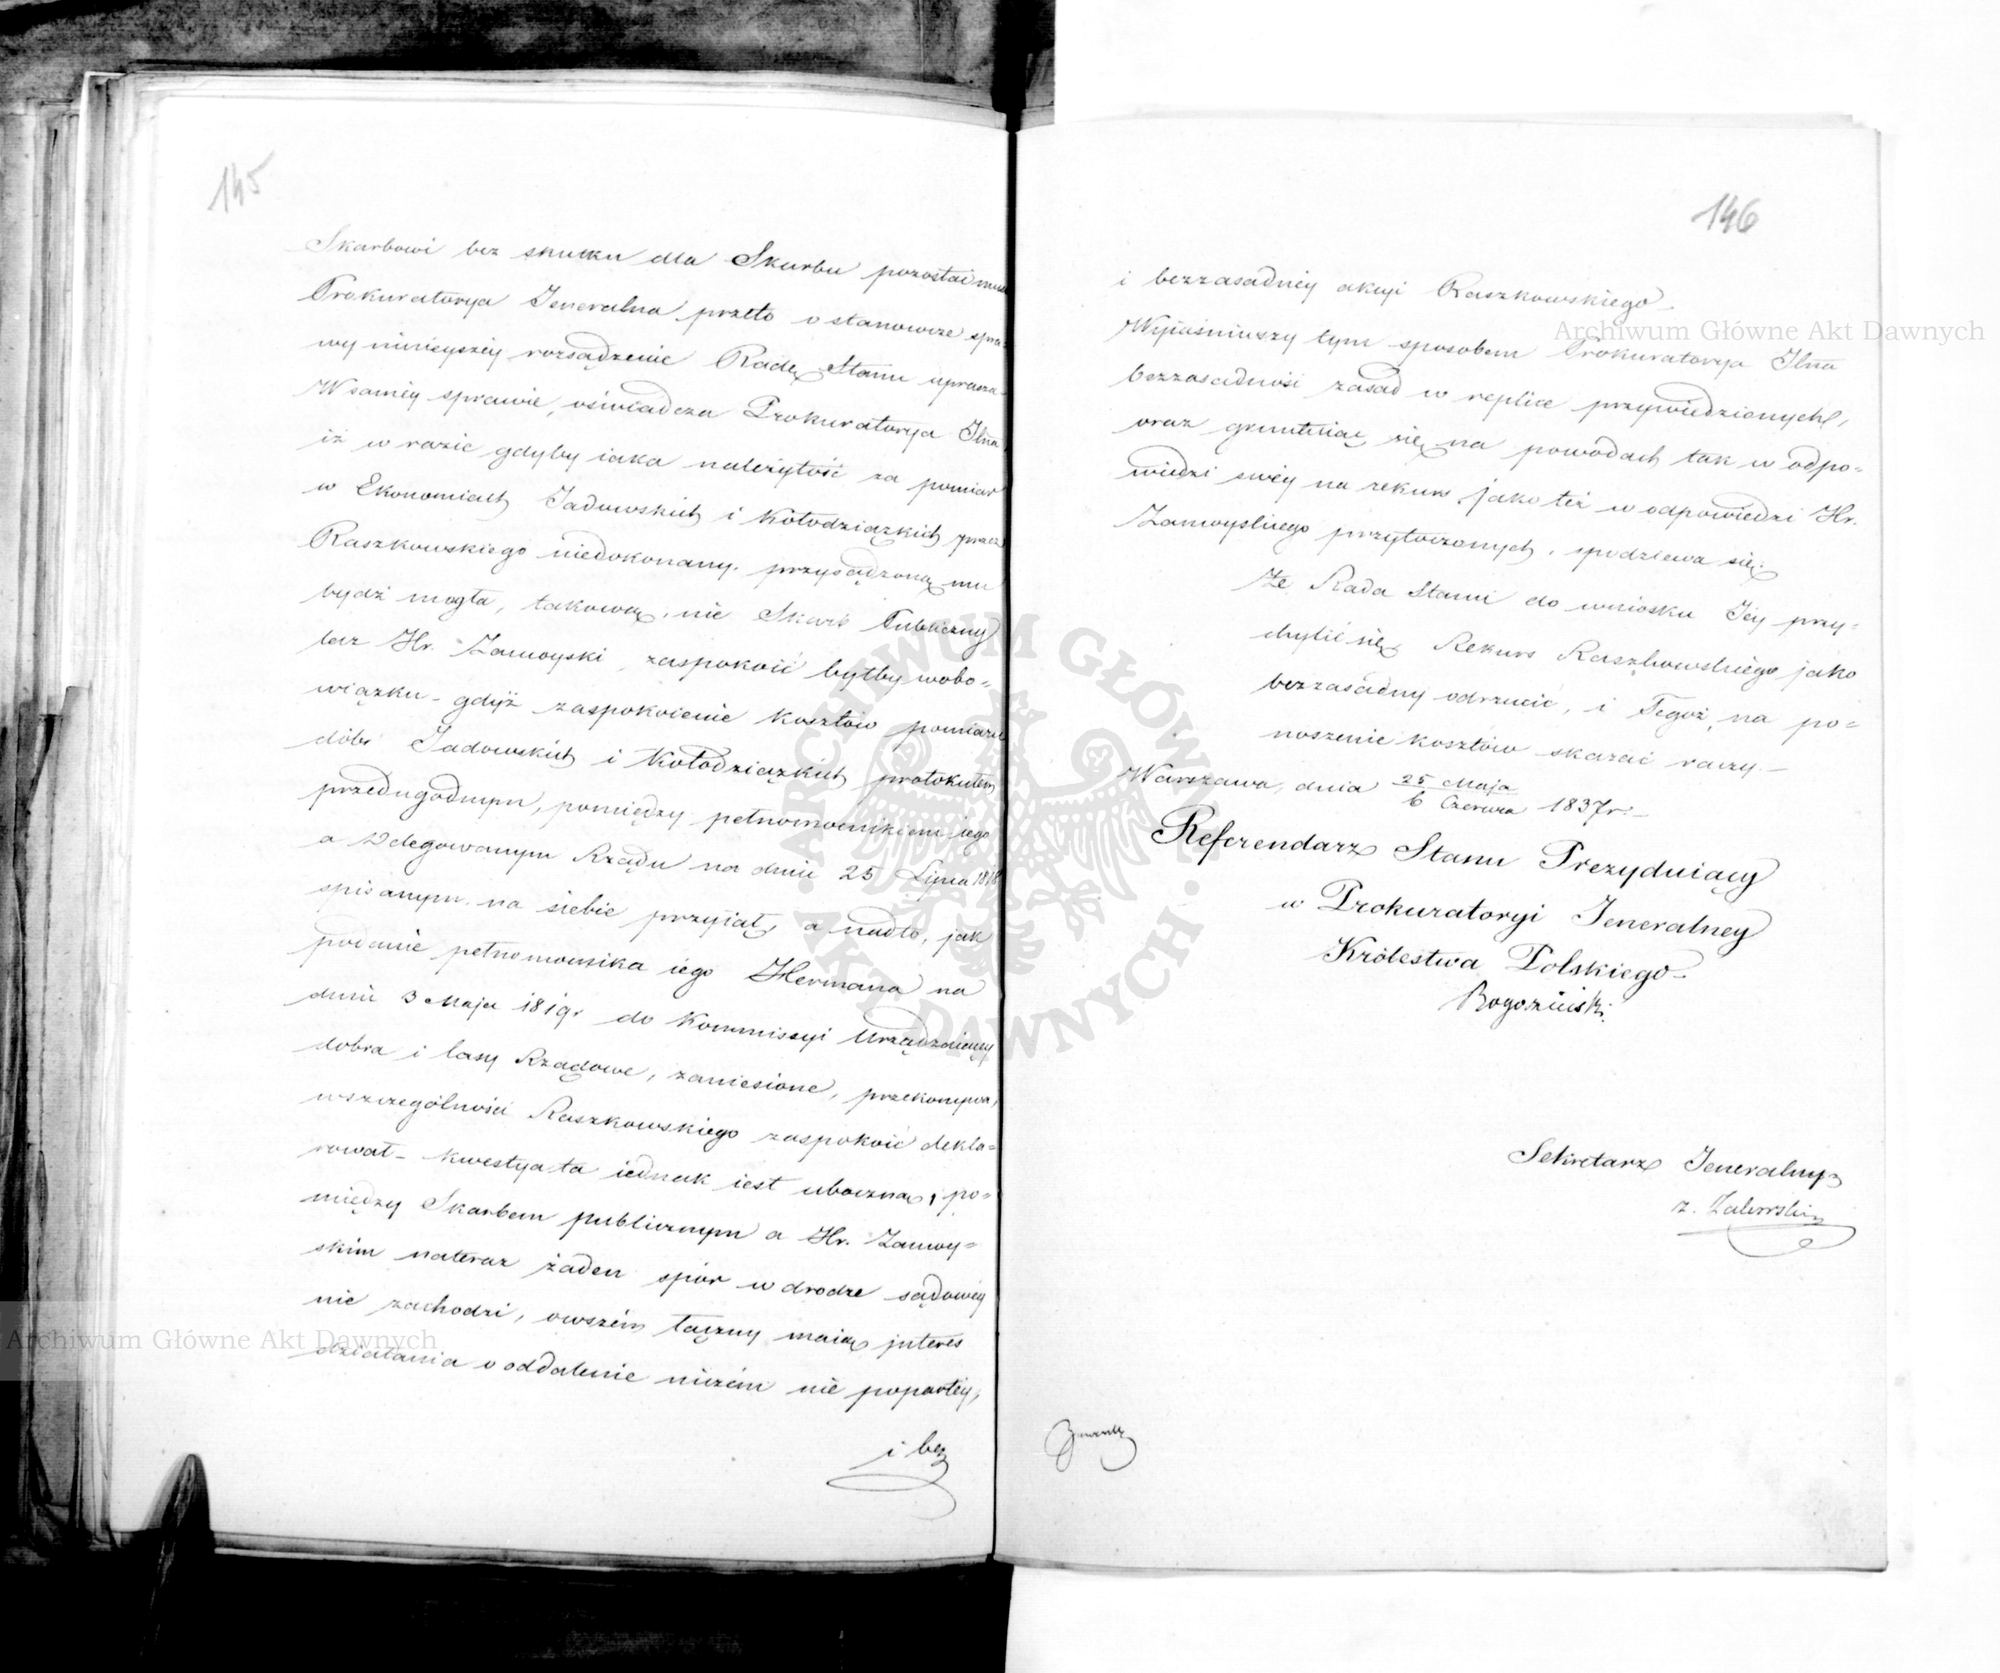 145
Skarbowi bez skutku dla Skarbu pozostać musi
Prokuratorya Jeneralna przeto o stanowcze spra=
wy ninieyszéy rozsądzenie Radę Stanu uprasza.
W saméy sprawie, oświadcza Prokuratorya Jlna,
iż w razie gdyby iaka należytość za pomiar
w Ekonomiach Jadowskich i Kołodziązkich przez
Raszkowskiego niedokonany, przysądzoną mu
bydź mogła, takową, nie Skarb Publiczny
lecz Hr. Zamoyski zaspokoić byłby wobo=
wiązku – gdyż zaspokoienie kosztów pomiaru
dóbr Jadowskich i Kołodziązkich protokułem
przedugodnym, pomiędzy pełnomocnikiem iego
a Delegowanym Rządu na dniu 25 Lipca 1818
spisanym na siebie przyiął, a nadto, jak
podanie pełnomocnika iego Hermana na
dniu 3 Maja 1819r do Kommissyi Urządzaiącéy
dobra i lasy Rządowe, zaniesione, przekonywa,
wszczególności Raszkowskiego zaspokoić dekla=
rował – kwestya ta iednak iest uboczną, i po=
między Skarbem publicznym a Hr. Zamoy=
skim nateraz żaden spór w drodze sądowéy
nie zachodzi, owszém łączny maią jnteres
działania o oddalenie niczém nie popartéy,
i bez
146
i bezzasadnéy akcyi Raszkowskiego.
Wyiaśniwszy tym sposobem Prokuratorya Jlna
bezzasadność zasad w replice przywiedzionych,
oraz gruntuiąc się na powodach tak w odpo=
wiedzi swéy na rekurs, jako też w odpowiedzi Hr.
Zamoyskiego przytoczonych, spodziewa się:
Że Rada Stanu do wniosku Jéy przy=
chylić się, Rekurs Raszkowskiego jako
bezzasadny odrzucić, i Tegoż na po=
noszenie kosztów skazać raczy. –
Warszawa, dnia 25 Maja / 6 Czerwca 1837r. –
Referendarz Stanu Prezyduiący
w Prokuratoryi Jeneralney
Królestwa Polskiego
Sekretarz Jeneralny
Archiwum Główne Akt Dawnych
Archiwum Główne Akt Dawnych
ARCHIWUM GŁÓWNE AKT DAWNYCH